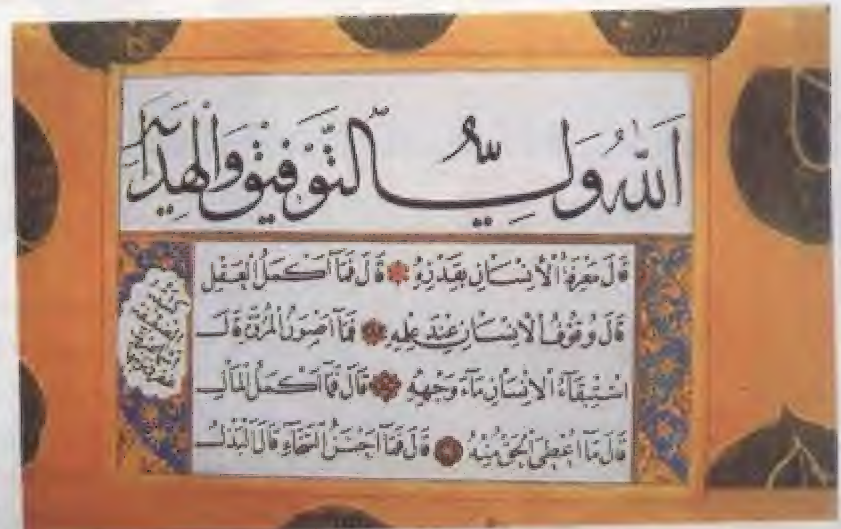 اَللّٰهُ وَلِيُّ التَّوْفِيْقِ وَالْهِدَايَه
قَالَ مَعْرِفَةُ الْاِنْسَانِ بِقَدْرِهِ قَالَ فَمَا اَكْمَلُ الْعَقْلِ
قَالَ وُقُوْفُ الْاِنْسَانِ عِنْدَ عِلْمِهِ قَالَ فَمَا اَصْوَنُ الْمُرُوَّةِ قَالَ
اسْتِبْقَاءُ الْاِنْسَانِ مَاءَ وَجْهِهِ قَالَ فَمَا اَكْمَلُ الْمَالِ
قَالَ مَا اُعْطِيَ الْحَقُّ مِنْهُ قَالَ فَمَا اَحْسَنُ السَّخَاءِ قَالَ الْبَذْلُ